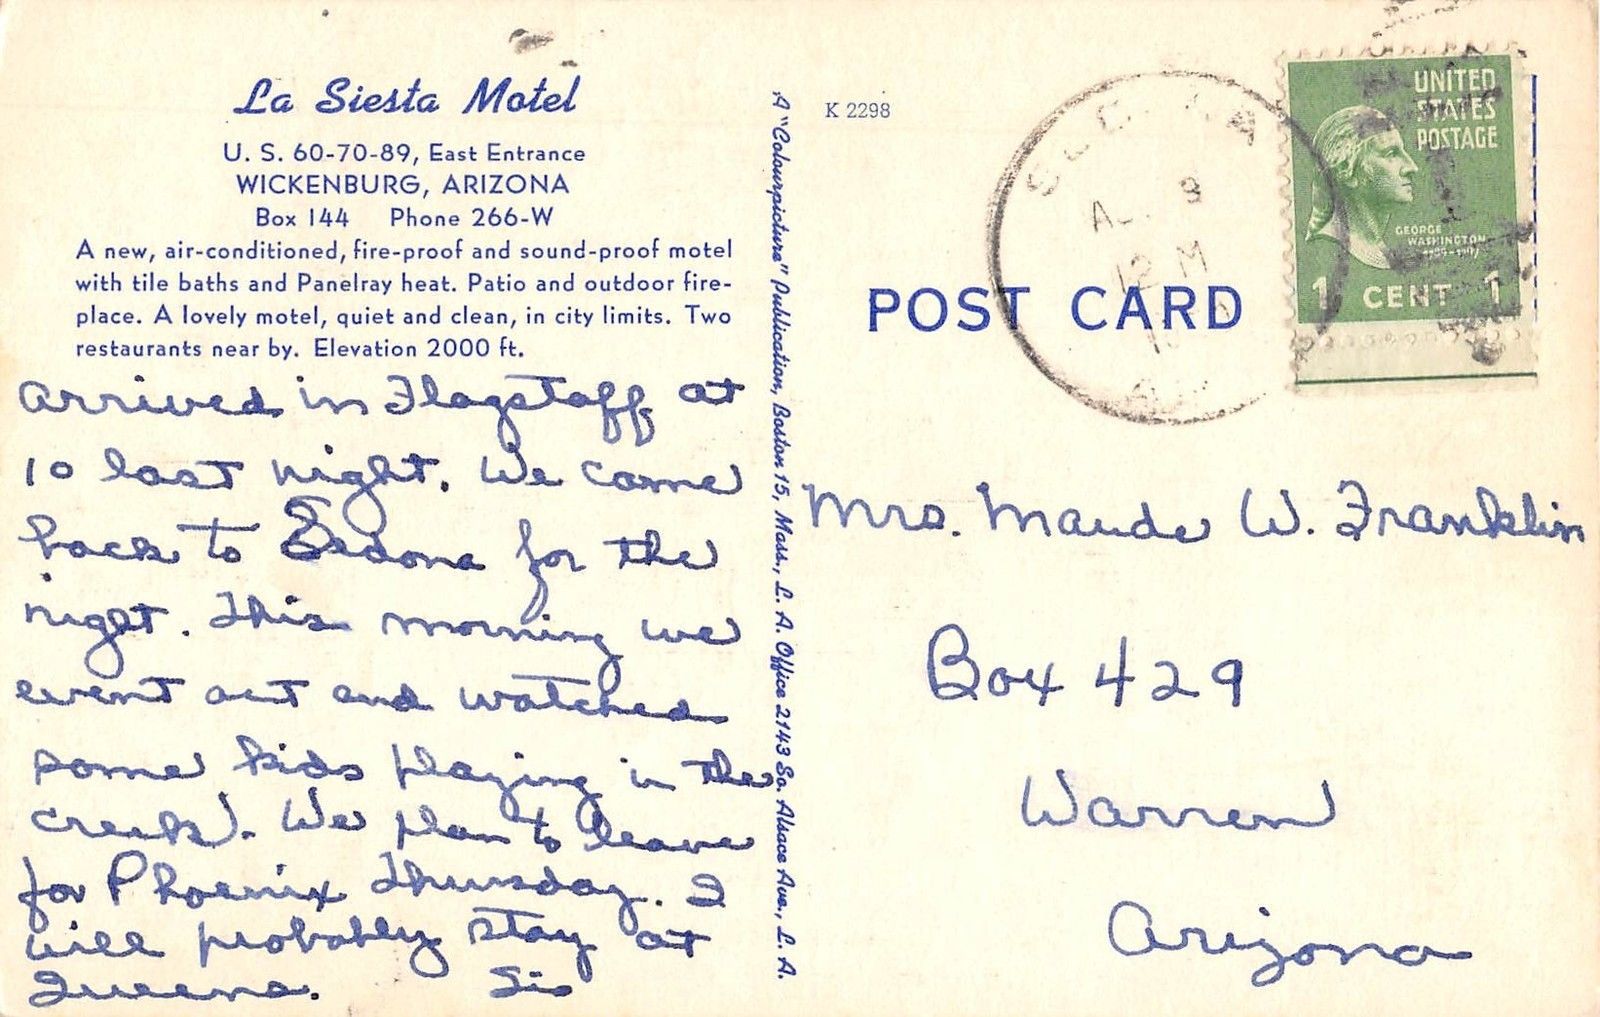 La Siesta Motel
U. S. 60-70-89, East Entrance
WICKENBURG, ARIZONA
Box 144 Phone 266-W
A new, air-conditioned, fire-proof and sound-proof motel
with tile baths and Panelray heat. Patio and outdoor fire-
place. A lovely motel, quiet and clean, in city limits. Two
restaurants near by. Elevation 2000 ft.
Arrived in Flagstaff at
10 last night. We came
back to Sedona for the
night. This morning we
went out and watched
some kids playing in the
creek. We plan to leave
for Phoenix Thursday. I
will probably stay at
Sis
A "Colourpicture" Publication, Boston 15, Mass., L. A. Office 2143 So. Alsace Ave., L. A.
K 2298
POST CARD
9
12 M
UNITED
STATES
POSTAGE
GEORGE
WASHINGTON
1 CENT 1
Mrs. Maude W. Franklin
Box 429
Warren
Arizona